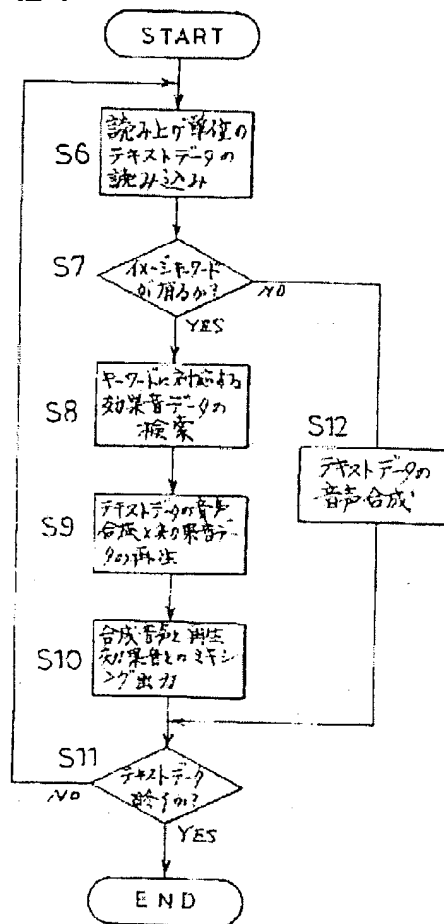 START
S6
読み上げ単位の
テキストデータの
読み込み
S7
イメージキーワード
が有るか?
NO
YES
S8
キーワードに対応する
効果音データの
検索
S12
テキストデータの
音声合成
S9
テキストデータの音声
合成と効果音デー
タの再生
S10
合成音声と再生
効果音とのミキシ
ング出力
S11
テキストデータ
終了か?
NO
YES
END